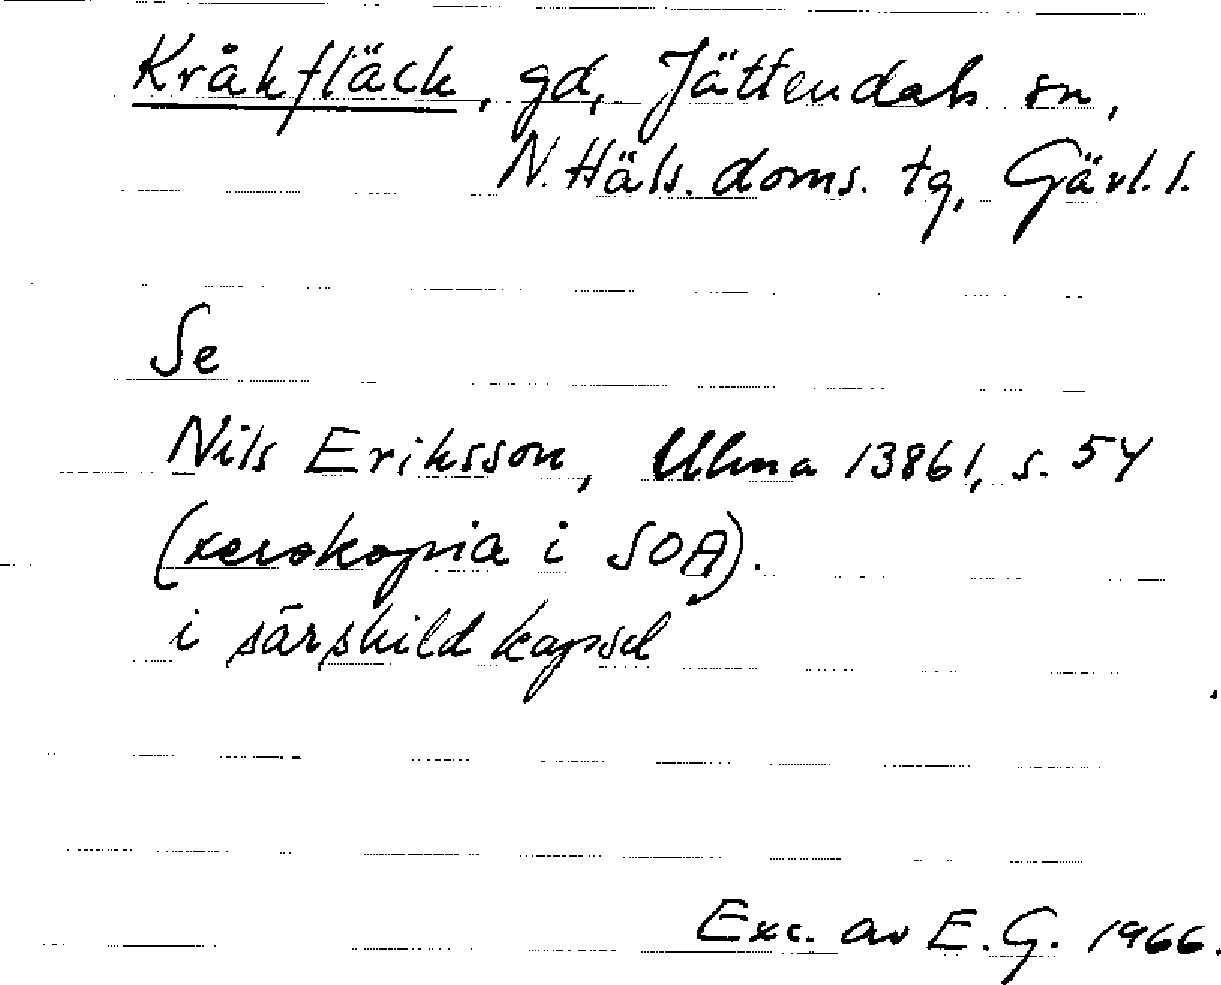 Kråkfläck, gd, Jättendals sn,
N. Häls. doms. tg, Gävl. l.
Se
Nils Eriksson, Ulma 13861, s. 54
(xerokopia i SOA).
i särskild kapsel
Exc. av E. G. 1966.